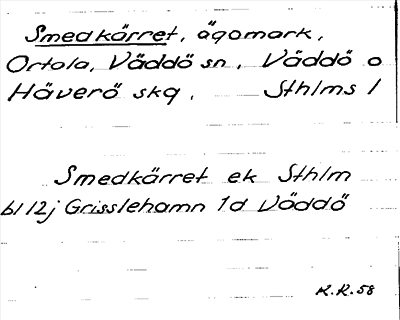 Smedkärret, ägomark,
Ortola, Väddö sn, Väddö o
Häverö skg, Sthlms l
Smedkärret ek Sthlm
bl 12j Grisslehamn 1d Väddö
K.R.58